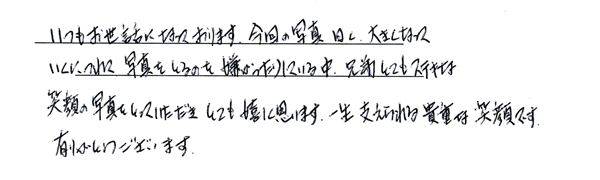 いつもお世話になっております。今回の写真 日々、大きくなって
いくにつれて 写真をとるのを 嫌がったりしている中、兄弟とてもステキな
笑顔の写真をとっていただき とても嬉しく思います。一生 支えられる 貴重な 笑顔です。
有りがとうございます。